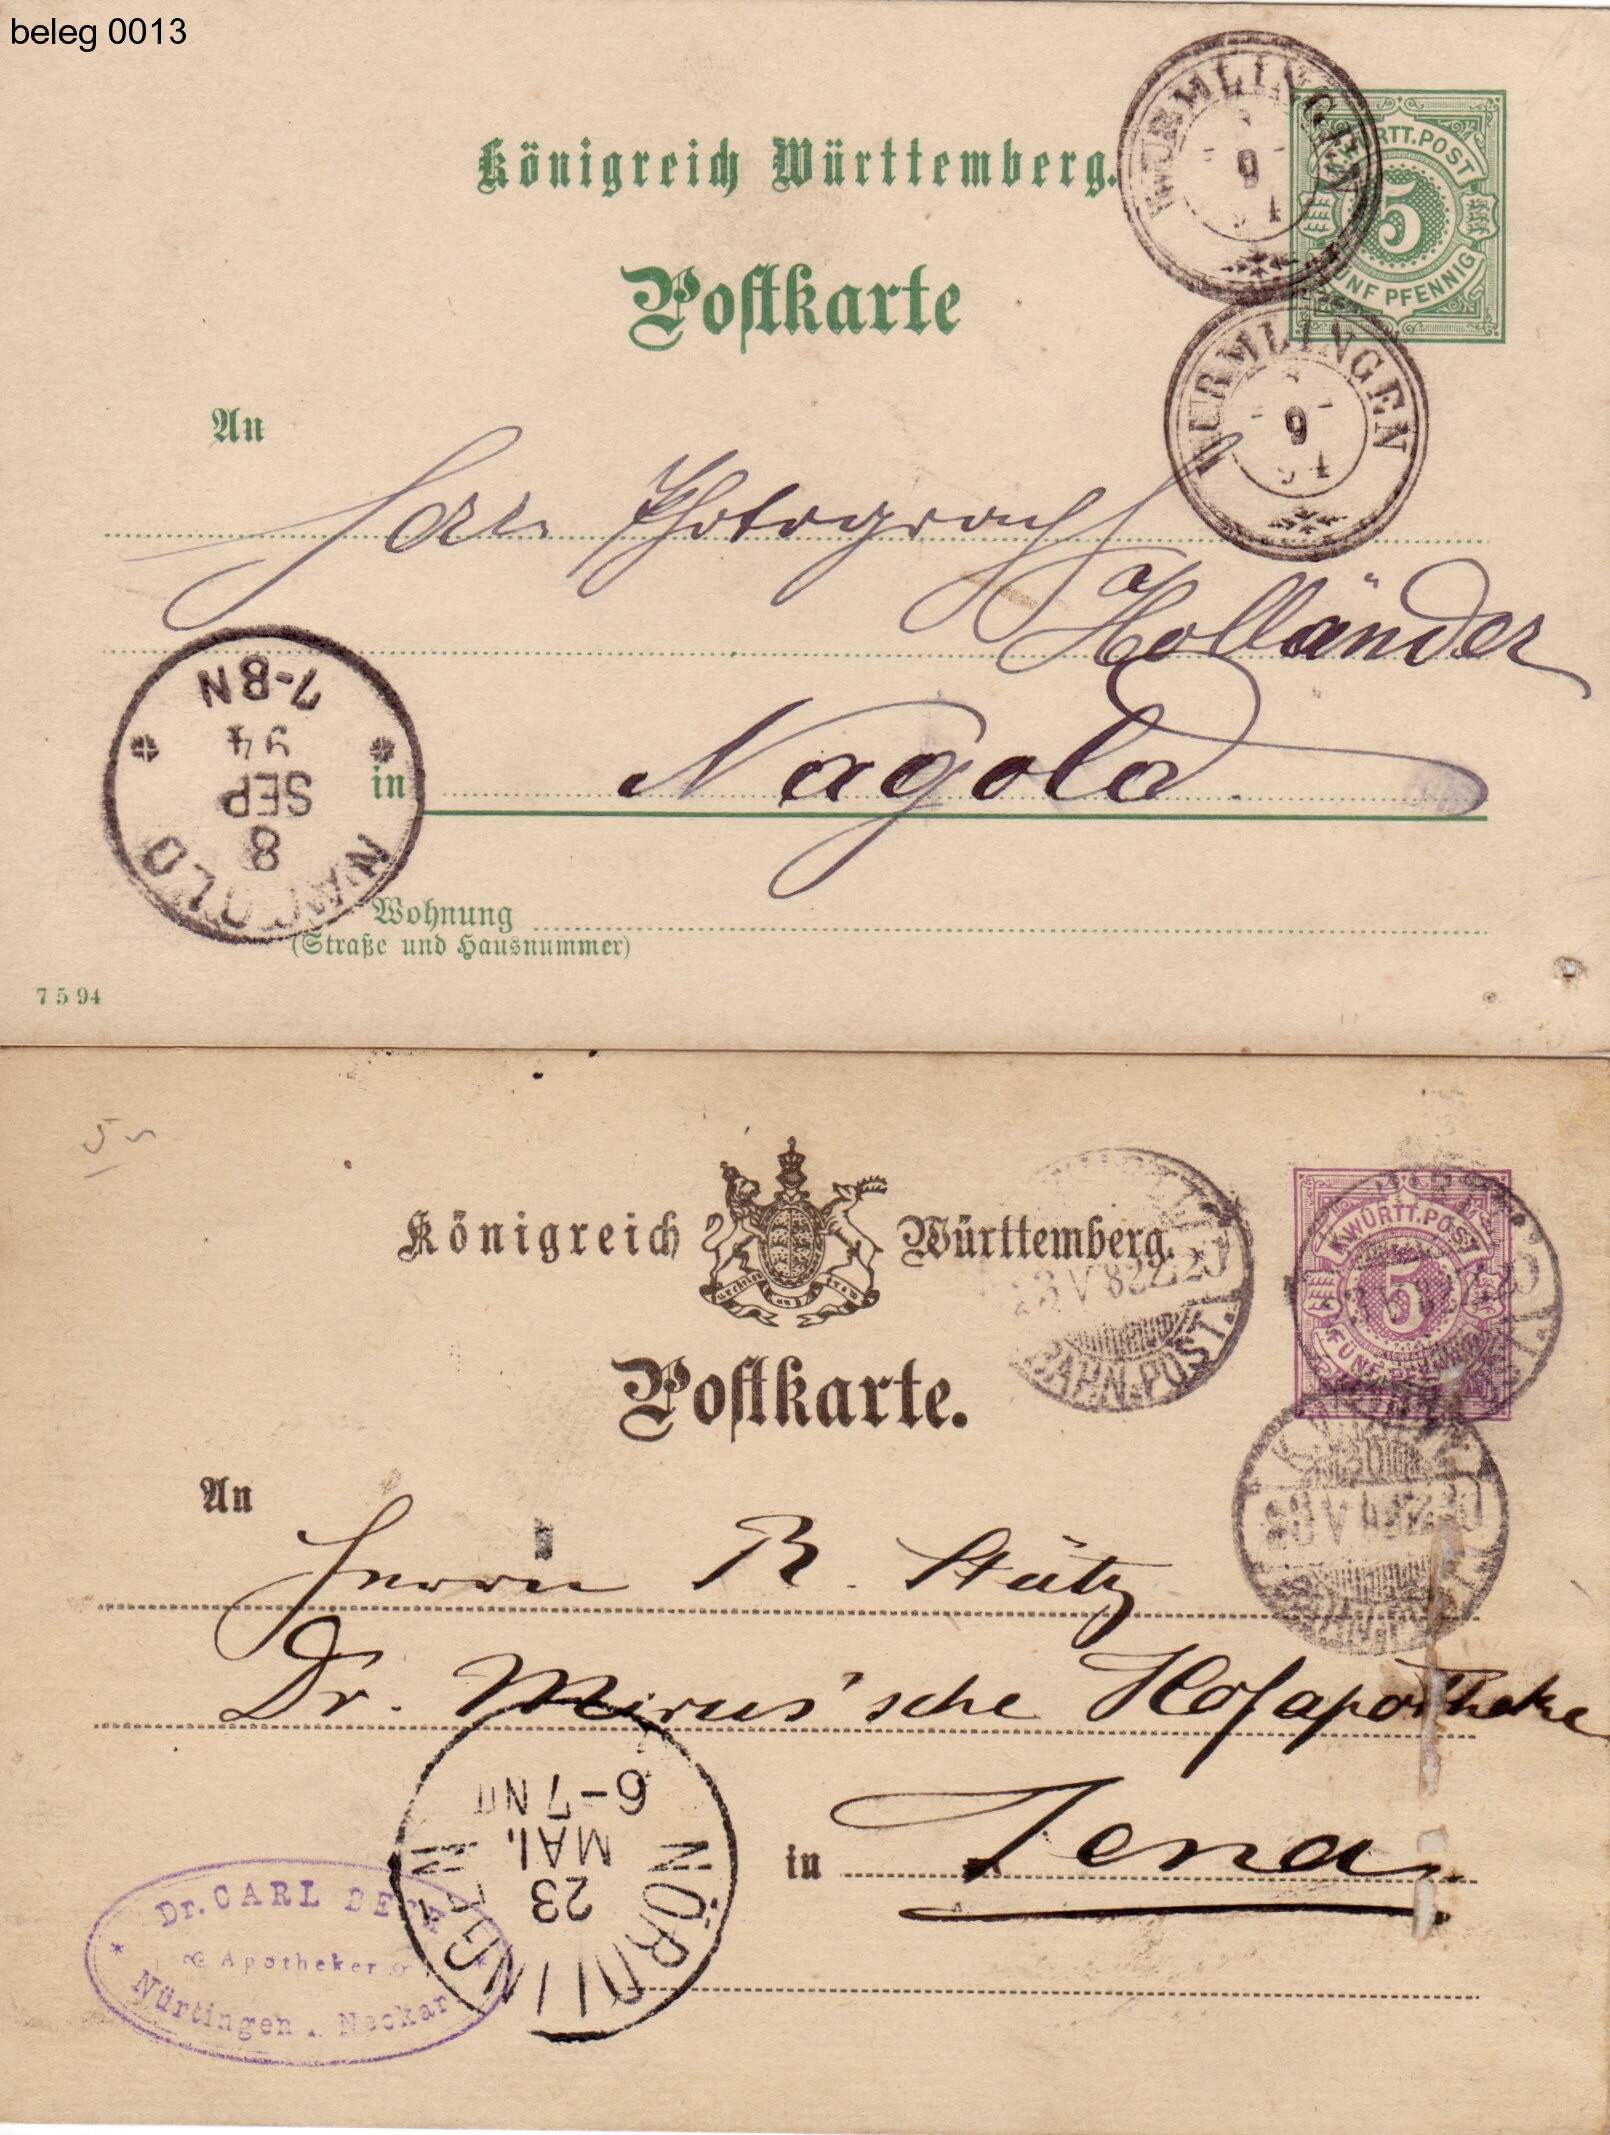 beleg 0013
Königreich Württemberg.
Postkarte
WURMLINGEN
8
9
94
K. WÜRTT. POST
5
FÜNF PFENNIG
WURMLINGEN
8
9
94
An
Herrn Photograph
Holländer
in Nagold.
NAGOLD
8
SEP
94
7-8N
Wohnung
(Straße und Hausnummer)
7 5 94
Königreich Württemberg.
Postkarte.
23 V 82 Z 20
BAHN-POST
K. WÜRTT. POST
5
FÜNF
An
Herrn R. Stütz
Dr. Mirus'sche Hofapotheke
in Jena
23
MAI.
6-7 N
Dr. CARL
Apotheker
Nürtingen a. Neckar